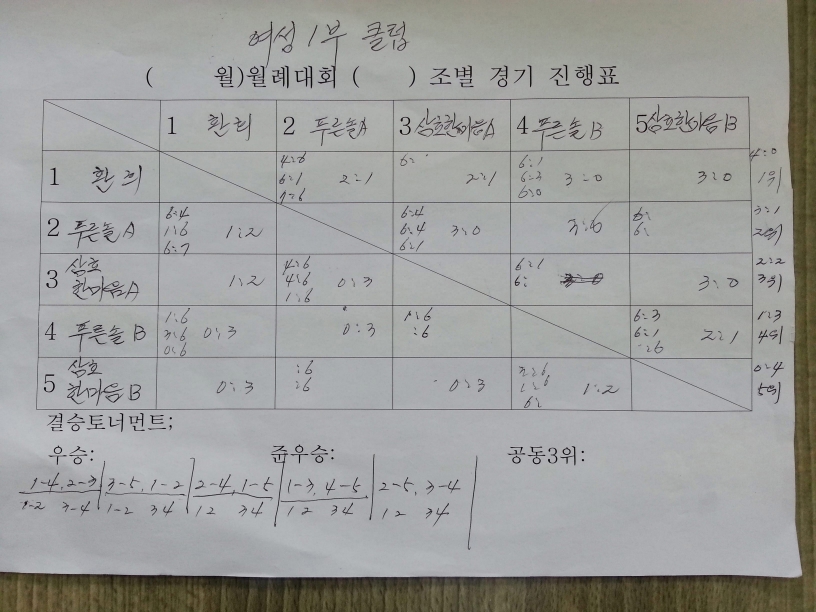 여성 1부 클럽
( 월)월례대회 ( ) 조별 경기 진행표
1 환희 2 푸른솔A 3 삼호한마음A 4 푸른솔B 5 삼호한마음B
1 환희 4:6 6:1 7:6 2:1 6: 2:1 6:1 6:3 6:0 3:0 3:0 4:0 1위
2 푸른솔A 6:4 1:6 6:7 1:2 6:4 6:4 6:1 3:0 6: 6: 3:1 2위
3 삼호한마음A 1:2 4:6 4:6 1:6 0:3 6:1 6: 3:0 2:2 3위
4 푸른솔B 1:6 3:6 0:6 0:3 0:3 1:6 :6 6:3 6:1 :6 2:1 1:3 4위
5 삼호한마음B 0:3 :6 :6 0:3 1:6 6: 1:2 0:4 5위
결승토너먼트;
우승: 준우승: 공동3위:
1-4, 2-3 3-5, 1-2 2-4, 1-5 1-3, 4-5 2-5, 3-4
1-2 3-4 1-2 34 12 34 12 34 12 34